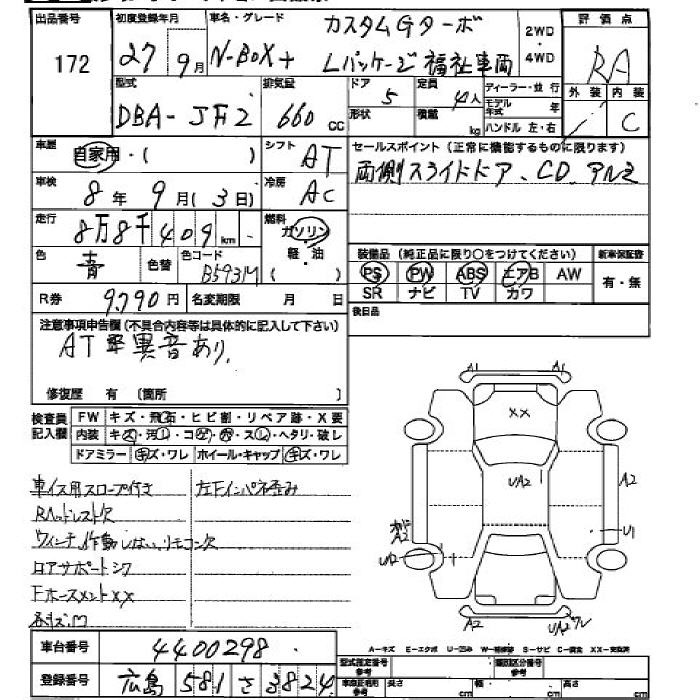 出品番号 初度登録年月 車名・グレード カスタムGターボ 2WD・4WD 評価点
172 27 9月 N-BOX+ Lパッケージ 福祉車両 RA
型式 排気量 ドア 定員 ディーラー・並行 外装 内装
DBA-JF2 660 CC 5 4人 モデル年式 年 C
形状 積載 kg ハンドル 左・右
車歴 自家用・( ) シフト AT セールスポイント(正常に機能するものに限ります)
車検 8年 9月(3日) 冷房 AC 両側スライドドア、CD アルミ
走行 8万8千409km 燃料 ガソリン・軽油( )
色 青 色替 色コード B593M 装備品(純正品に限り○をつけてください) 新車保証書
PS PW ABS エアB AW 有・無
SR ナビ TV カワ
R券 9,790円 名変期限 月 日 後日品
注意事項申告欄(不具合内容等は具体的に記入して下さい)
AT 異音あり
修復歴 有 〔箇所 〕
検査員記入欄 FW キズ・飛石・ヒビ割・リペア跡・X要
内装 キズ・汚・コゲ・穴・スレ・ヘタリ・破し
ドアミラー キズ・ワレ ホイール・キャップ キズ・ワレ
車イス用スロープ付き 左Fインパネ歪み
Rヘッドレスト欠
ウィンチ作動しない、リモコン欠
ロアサポートシワ
FホースメントXX
A1 A1
XX
UA2 A2
U1
A2
UA2
A2 UA2 ワレ
車台番号 4400298
登録番号 広島 581 さ 3824
A-キズ E-エクボ U-凹み W-補修跡 S-サビ C-腐食 XX-交換済
型式指定番号参考 類別区分番号参考
車庫証明用参考 長さ cm 幅 cm 高さ cm